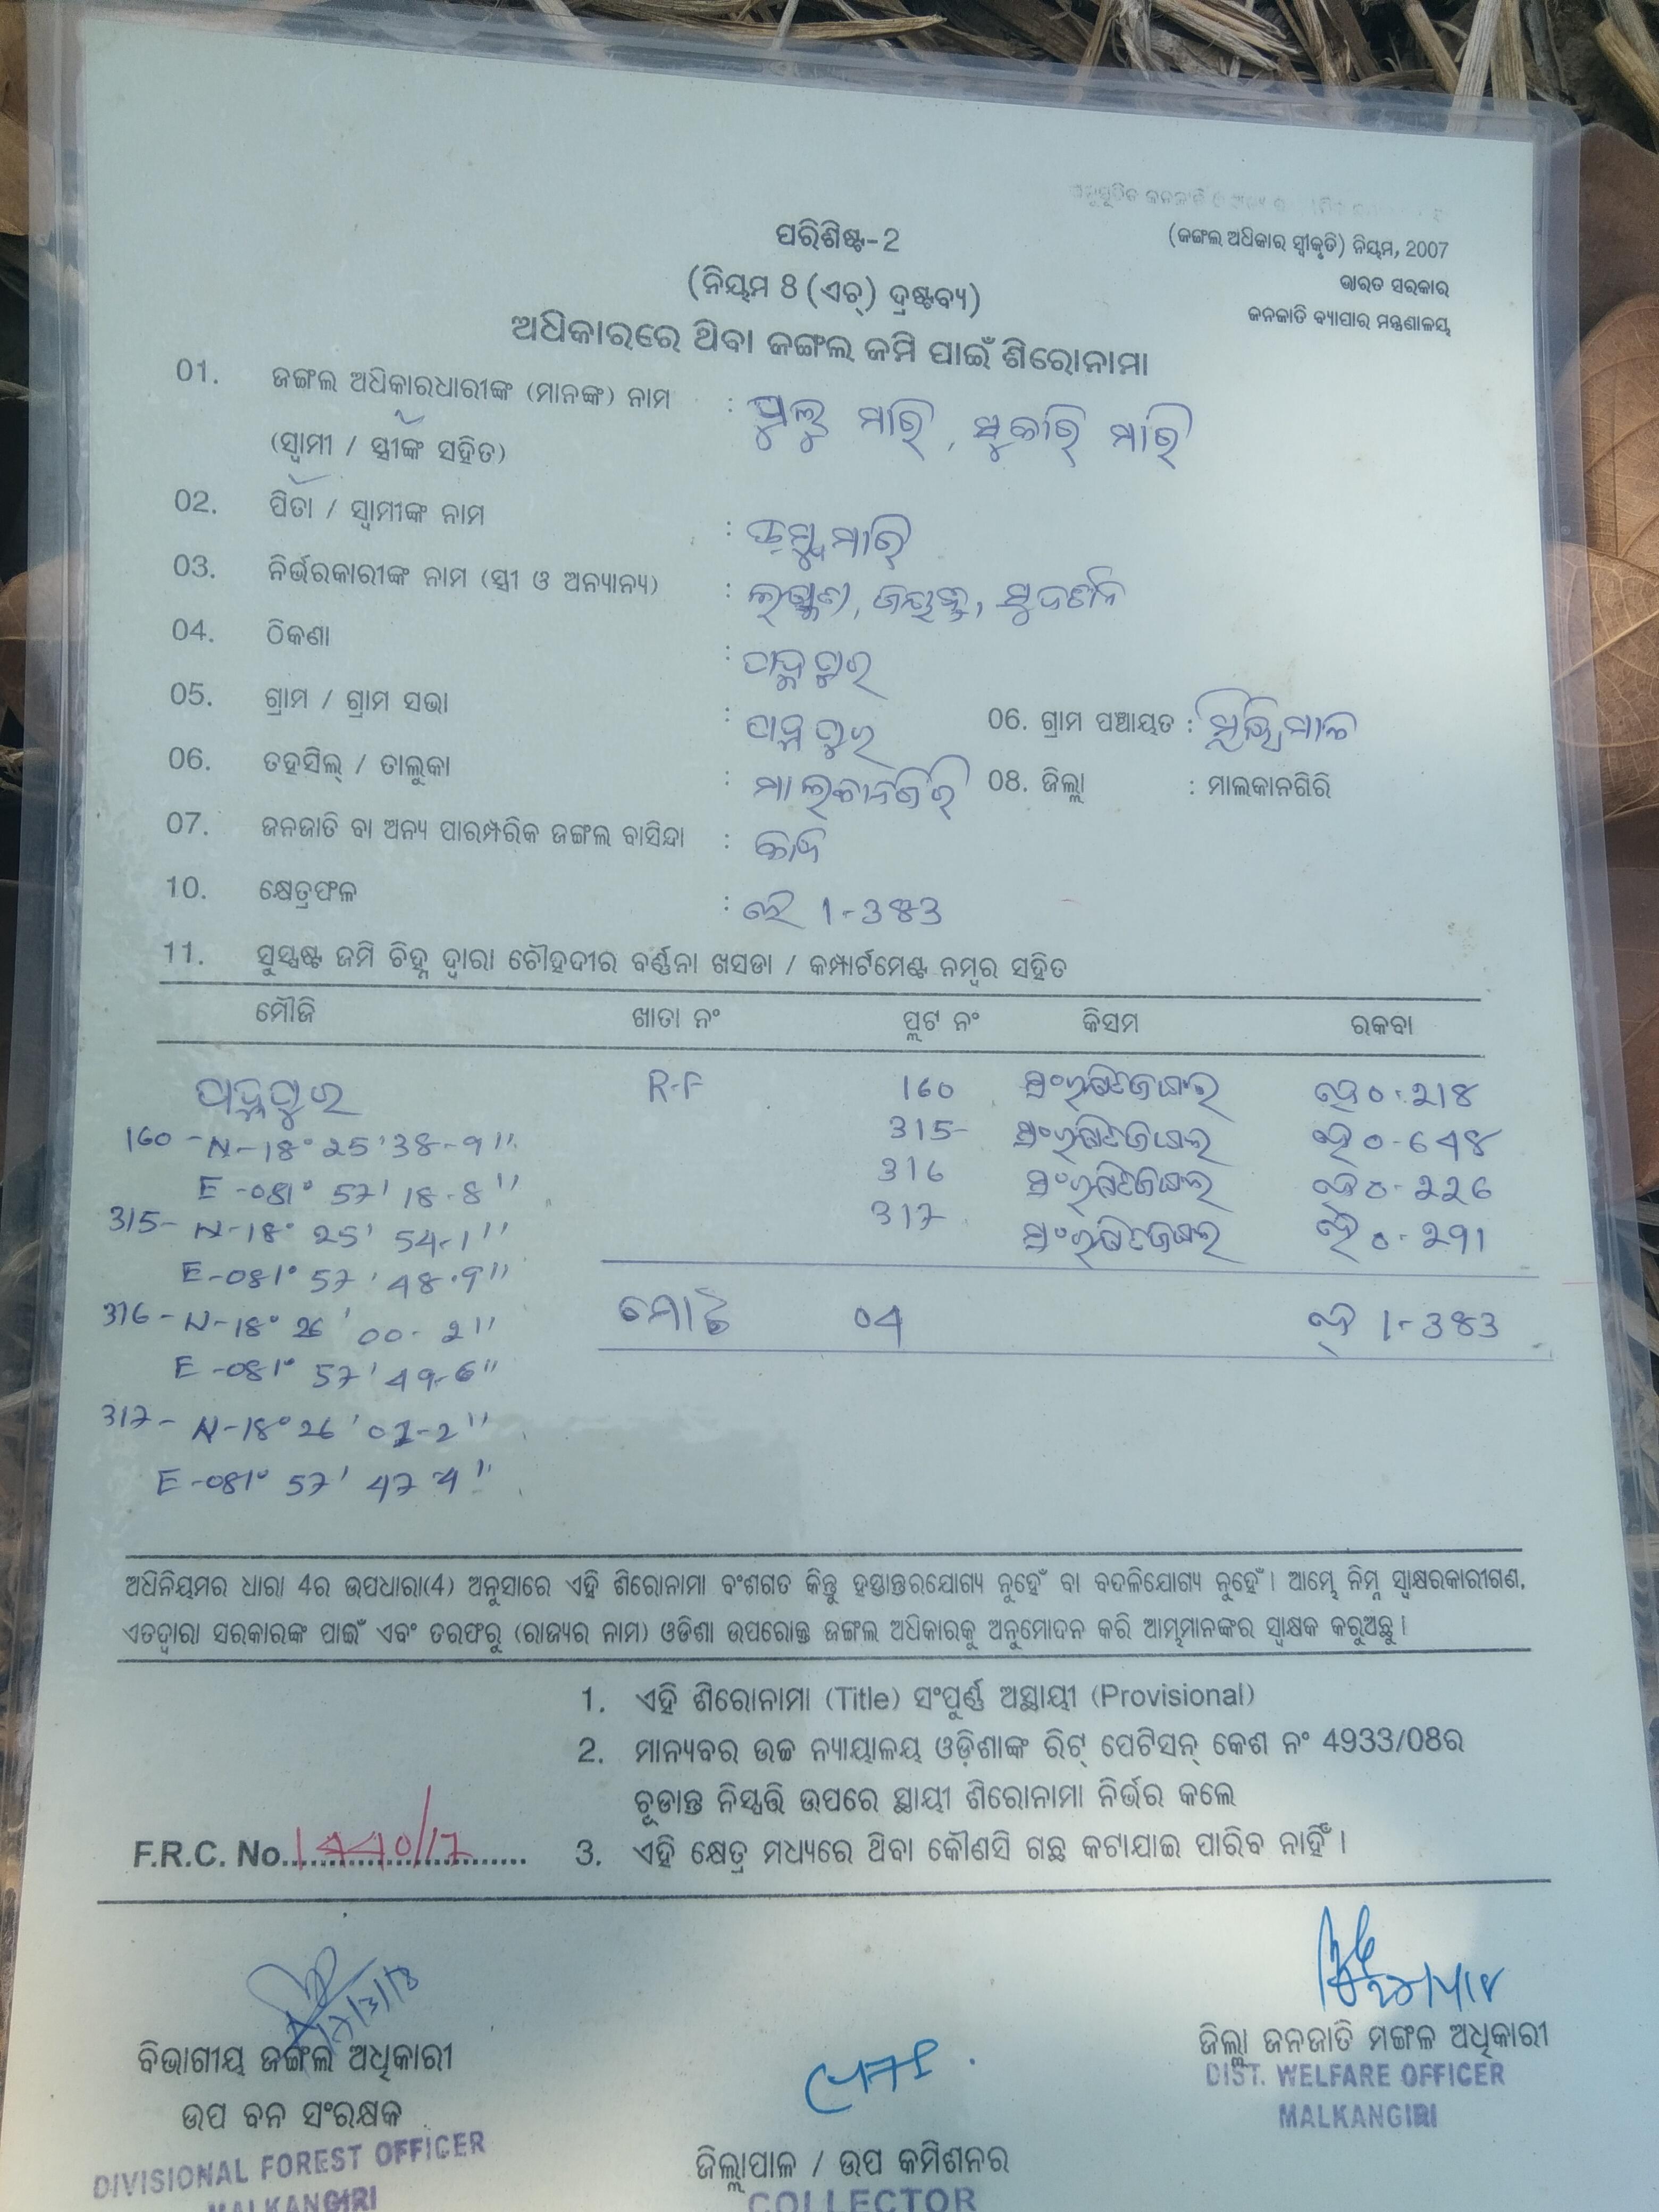 ପରିଶିଷ୍ଟ-2
(ଜଙ୍ଗଲ ଅଧିକାର ସ୍ୱୀକୃତି) ନିୟମ, 2007
(ନିୟମ 8 (ଏଚ୍) ଦ୍ରଷ୍ଟବ୍ୟ)
ଭାରତ ସରକାର
ଜନଜାତି ବ୍ୟାପାର ମନ୍ତ୍ରଣାଳୟ
ଅଧିକାରରେ ଥିବା ଜଙ୍ଗଲ ଜମି ପାଇଁ ଶିରୋନାମା
01. ଜଙ୍ଗଲ ଅଧିକାରଧାରୀଙ୍କ (ମାନଙ୍କ) ନାମ : ମାରି, ସୁକରି ମାରି
(ସ୍ୱାମୀ / ସ୍ତ୍ରୀଙ୍କ ସହିତ)
02. ପିତା / ସ୍ୱାମୀଙ୍କ ନାମ : ମାରି
03. ନିର୍ଭରକାରୀଙ୍କ ନାମ (ସ୍ତ୍ରୀ ଓ ଅନ୍ୟାନ୍ୟ) : ଲକ୍ଷ୍ମଣ, ଜୟନ୍ତ, ସୁଦର୍ଶନ
04. ଠିକଣା : ପଦ୍ମପୁର
05. ଗ୍ରାମ / ଗ୍ରାମ ସଭା : ପଦ୍ମପୁର 06. ଗ୍ରାମ ପଞ୍ଚାୟତ :
06. ତହସିଲ୍ / ତାଲୁକା : ମାଲକାନଗିରି 08. ଜିଲ୍ଲା : ମାଲକାନଗିରି
07. ଜନଜାତି ବା ଅନ୍ୟ ପାରମ୍ପରିକ ଜଙ୍ଗଲ ବାସିନ୍ଦା :
10. କ୍ଷେତ୍ରଫଳ : 1-383
11. ସୁସ୍ପଷ୍ଟ ଜମି ଚିହ୍ନ ଦ୍ୱାରା ଚୌହଦୀର ବର୍ଣ୍ଣନା ଖସଡା / କମ୍ପାର୍ଟମେଣ୍ଟ ନମ୍ବର ସହିତ
ମୌଜି ଖାତା ନଂ ପ୍ଲଟ ନଂ କିସମ ରକବା
ପଦ୍ମପୁର R-F 160 ସଂରକ୍ଷିତ ଜଙ୍ଗଲ 0-218
160 - N-18° 25' 38-9" 315 ସଂରକ୍ଷିତ ଜଙ୍ଗଲ 0-648
E-081° 57' 18-8" 316 ସଂରକ୍ଷିତ ଜଙ୍ଗଲ 0-226
315- N-18° 25' 54-1" 317 ସଂରକ୍ଷିତ ଜଙ୍ଗଲ 0-291
E-081° 57' 48.9"
316- N-18° 26' 00-2" ମୋଟ 04 1-383
E-081° 57' 49-6"
317- N-18° 26' 02-2"
E-081° 57' 47-4"
ଅଧିନିୟମର ଧାରା 4ର ଉପଧାରା(4) ଅନୁସାରେ ଏହି ଶିରୋନାମା ବଂଶଗତ କିନ୍ତୁ ହସ୍ତାନ୍ତରଯୋଗ୍ୟ ନୁହେଁ ବା ବଦଳିଯୋଗ୍ୟ ନୁହେଁ । ଆମ୍ଭେ ନିମ୍ନ ସ୍ୱାକ୍ଷରକାରୀଗଣ,
ଏତଦ୍ଵାରା ସରକାରଙ୍କ ପାଇଁ ଏବଂ ତରଫରୁ (ରାଜ୍ୟର ନାମ) ଓଡିଶା ଉପରୋକ୍ତ ଜଙ୍ଗଲ ଅଧିକାରକୁ ଅନୁମୋଦନ କରି ଆମ୍ଭମାନଙ୍କର ସ୍ୱାକ୍ଷକ କରୁଅଛୁ ।
1. ଏହି ଶିରୋନାମା (Title) ସଂପୁର୍ଣ୍ଣ ଅସ୍ଥାୟୀ (Provisional)
2. ମାନ୍ୟବର ଉଚ୍ଚ ନ୍ୟାୟାଳୟ ଓଡ଼ିଶାଙ୍କ ରିଟ୍ ପେଟିସନ୍ କେଶ ନଂ 4933/08ର
ଚୂଡାନ୍ତ ନିସ୍ପତ୍ତି ଉପରେ ସ୍ଥାୟୀ ଶିରୋନାମା ନିର୍ଭର କଲେ
F.R.C. No.
3. ଏହି କ୍ଷେତ୍ର ମଧ୍ୟରେ ଥିବା କୌଣସି ଗଛ କଟାଯାଇ ପାରିବ ନାହିଁ ।
ବିଭାଗୀୟ ଜଙ୍ଗଲ ଅଧିକାରୀ
ଉପ ବନ ସଂରକ୍ଷକ
DIVISIONAL FOREST OFFICER
MALKANGIRI
ଜିଲ୍ଲାପାଳ / ଉପ କମିଶନର
COLLECTOR
ଜିଲ୍ଲା ଜନଜାତି ମଙ୍ଗଳ ଅଧିକାରୀ
DIST. WELFARE OFFICER
MALKANGIRI